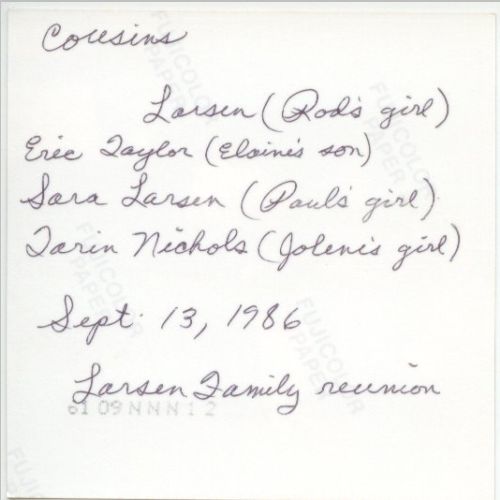 Cousins
Larsen (Rod's girl)
Eric Taylor (Elaine's son)
Sara Larsen (Paul's girl)
Tarin Nichols (Jolene's girl)
Sept. 13, 1986
Larsen Family reunion
61 09 N N N 1 2
FUJICOLOR
PAPER
FUJICOLOR
PAPER
FUJICOLOR
PAPER
FUJICOLOR
PAPER
FUJI